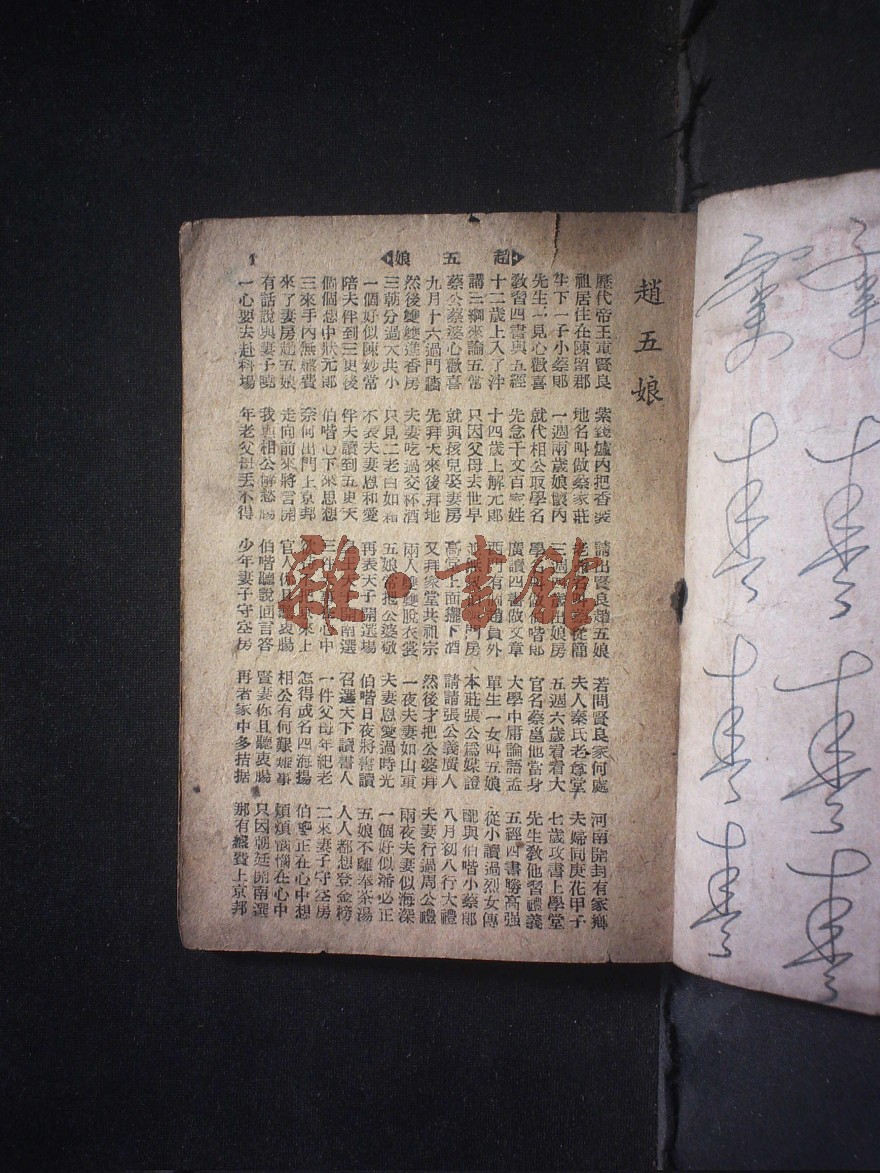 趙五娘
趙五娘
1
歷代帝王重賢良 紫金爐內把香裝 請出賢良趙五娘 若問賢良家何處 河南開封有家鄉
祖居住在陳留郡 地名叫做蔡家莊 老爺名叫蔡從簡 夫人秦氏老尊堂 夫婦同庚花甲子
生下一子小蔡郎 一週兩歲娘懷內 三週四歲出娘房 五週六歲看看大 七歲攻書上學堂
先生一見心歡喜 就代相公取學名 學名叫做伯喈郎 官名蔡邕他當身 先生教他習禮義
教習四書與五經 先念千文百家姓 廣讀四書做文章 大學中庸論語孟 五經四書勝高強
十二歲上入了泮 十四歲上解元郎 西有個趙員外 單生一女叫五娘 從小讀過烈女傳
講三綱來論五常 只因父母去世早 門房 本莊張公爲媒證 配與伯喈小蔡郎
蔡公蔡婆心歡喜 就與孩兒娶妻房 高堂上面擺下酒 請請張公義廣人 八月初八行大禮
九月十六過門牆 先拜天來後拜地 又拜家堂共祖宗 然後才把公婆拜 夫妻行過周公禮
然後雙雙進香房 夫妻吃過交杯酒 兩人雙雙脫衣裳 一夜夫妻如山重 兩夜夫妻似海深
三朝分過大共小 只見二老白如霜 五娘常把公婆敬 夫妻恩愛過時光 一個好似潘必正
一個好似陳妙常 不表夫妻恩和愛 再表天子開選場 伯喈日夜將書讀 五娘不離奉茶湯
陪夫伴到三更後 伴夫讀到五更天 天開南選 召選天下讀書人 人人都想登金榜
個個想中狀元郎 伯喈心下來思想 三件心中 一件父母年紀老 二來妻子守空房
三來手內無盤費 奈何出門上京邦 來上 怎得成名四海揚 伯喈正在心中想
來了妻房趙五娘 走向前來將言開 官人你且聽衷腸 相公有何艱難事 煩煩惱惱在心中
有話說與妻子曉 我與相公解愁腸 伯喈聽說回言答 賢妻你且聽衷腸 只因朝廷開南選
一心要去赴科場 年老父母丟不得 少年妻子守空房 再者家中多拮据 那有盤費上京邦
雜·書館